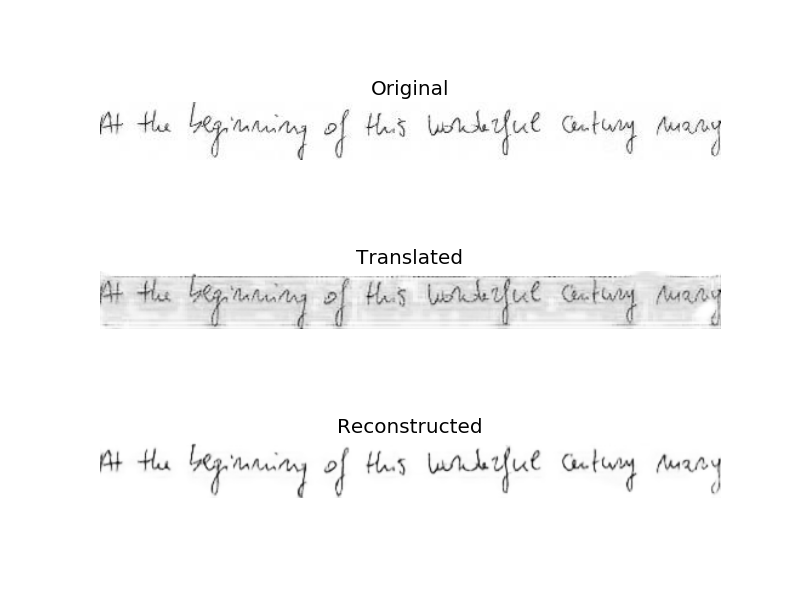 Original
At the beginning of this wonderful century many
Translated
At the beginning of this wonderful century many
Reconstructed
At the beginning of this wonderful century many